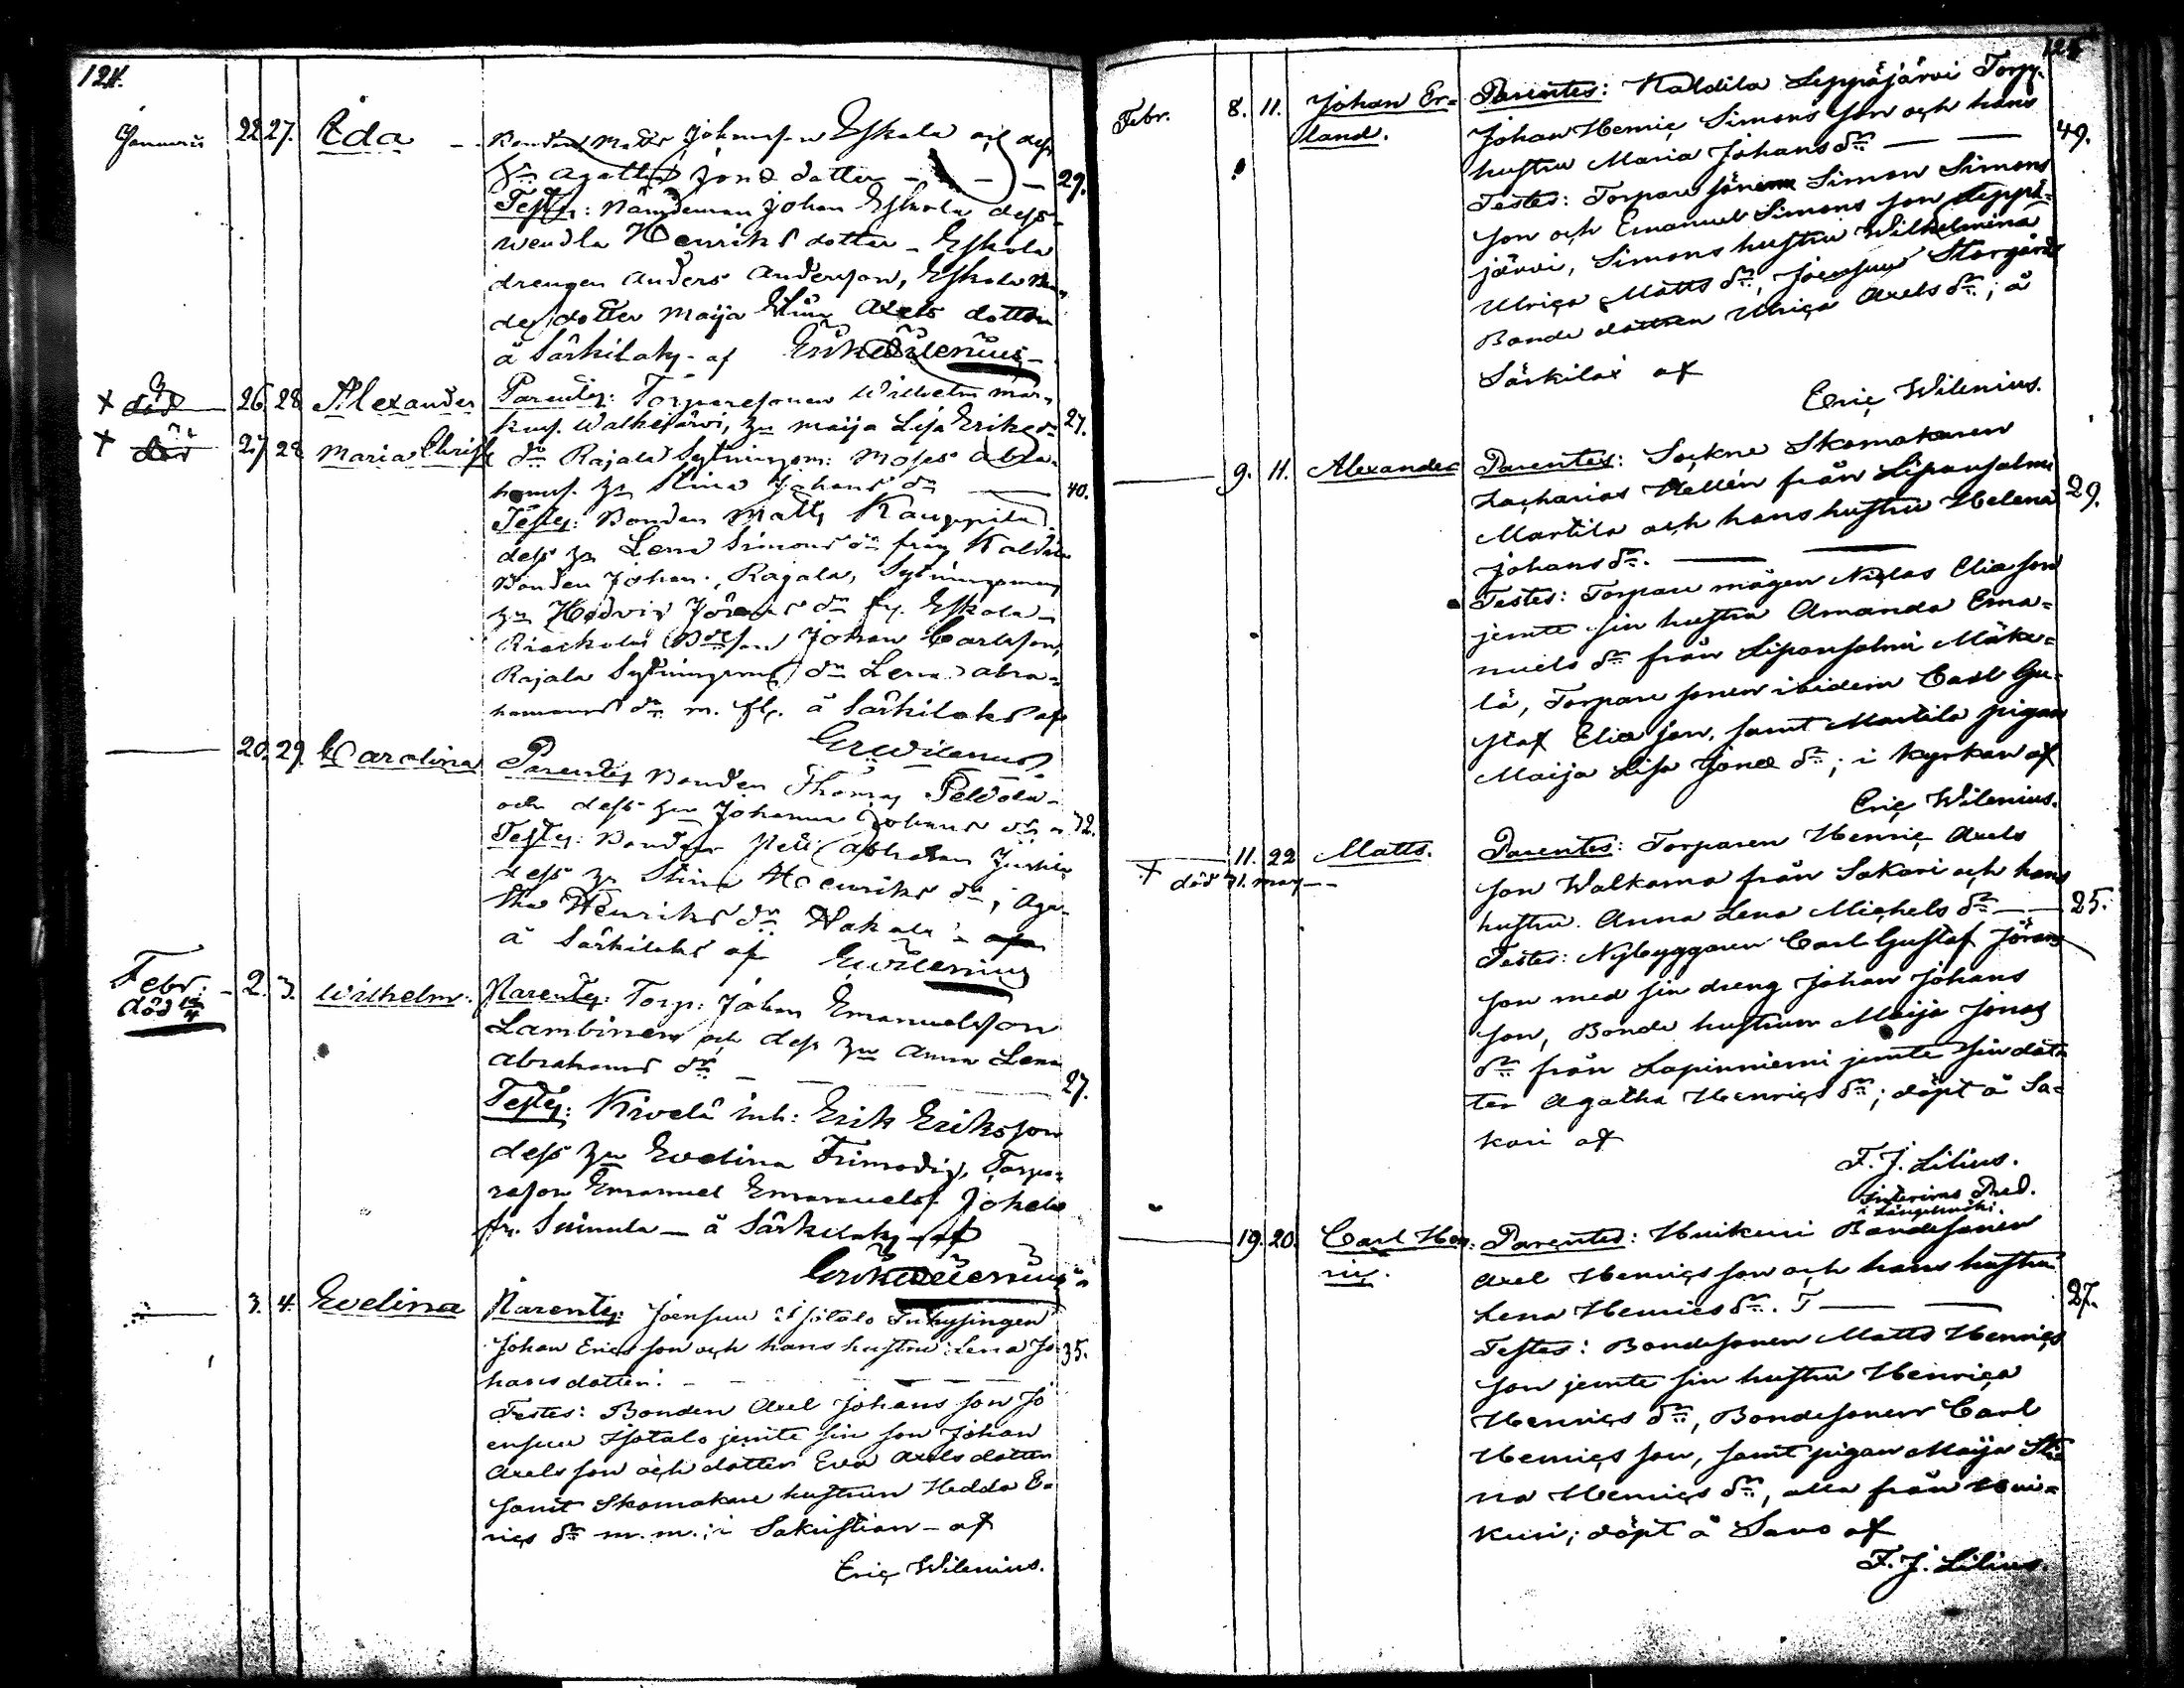 124.
Januarii 22 27. Eda Bonden Matts Johansson Eskola och dess
hu Agatha Jonæ dotter 29.
Testes: Nämdeman Johan Eskola dess
Wendla Henriks dotter - Eskola
drengen Anders Andersson, Eskola
dotter Maija Axels dotter
å Särkilaks af Erik Wilenius
+ död 26 28 Alexander Parentes: Torparesonen Wilhelm Mar-
kuss. Walkejärvi, hu Maija Lisa Eriks dr 27.
+ död 27 28 Maria Christ dr Rajala Sytningsm: Moses Abra-
hamss. hu Stina Johans dr 40.
Testes: Bonden Matts Kauppila
dess hu Lena Simons dr från Kaldila
Bonden Johan Rajala, Sytningsmans
hu Hedvig Jörans dr fr. Eskola
Johan Carlsson,
Rajala Sytningsmans dr Lena Abra-
hamans dr m. fl. å Särkilaks af
Er Wilenius
20. 29. Carolina Parentes Bonden Thomas Peldola
och dess hu Johanna Johans dr 32.
Testes: Bonden Abraham
dess hu Stina Henriks dr, Aga-
tha Henriks dr Hakala
å Särkilaks af E Wilenius
Febr: 2. 3. Wilhelm. Parentes: Torp: Johan Emanuelsson
död 12/4 Lambinen och dess hu Anna Lena
Abrahams dr 27.
Testes: Kivelä inh: Erik Eriksson
dess hu Evelina Frimodig, Torpa-
reson Emanuel Emanuelss. Jokela
fr. Suinula - å Särkilaks af
Erik Wilenius
3. 4. Evelina Parentes: Joensuu Isotalo Inhysingen
Johan Erics son och hans hustru Lena Jo- 35.
hans dotter.
Testes: Bonden Axel Johans son Jo
ensuu Isotalo jemte sin son Johan
Axels son och dotter Eva Axels dotter
samt Skomakare hustrun Hedda E-
rics dr m. m.; i Sakristian - af
Eric Wilenius.
Febr. 8. 11. Johan Er= Parentes: Kaldila Leppäjärvi Torp.
land. Johan Henric Simons son och hans
hustru Maria Johans dr 49.
Testes: Torpare sönerne Simon Simons
son och Emanuel Simons son Leppä-
järvi, Simons hustru Wilhelmina
Ulrica Matts dr, Joensuu Storgårds
Bonde dottren Ulrica Axels dr; å
Särkilax af
Eric Wilenius.
9. 11. Alexander Parentes: Sockne Skomakaren
Zacharias Hellén från Liponsalmi
Martila och hans hustru Helena 29.
Johans dr.
Testes: Torpare mågen Niclas Eliæ son
jemte sin hustru Amanda Ema=
nuels dr från Liponsalmi Mäke=
lä, Torpare sonen ibidem Carl Gu-
staf Eliæ son, samt Martila pigan
Maija Lisa Jonæ dr; i kyrkan af
Eric Wilenius.
11. 22 Matts. Parentes: Torparen Henric Axels
+ död 31. may son Walkama från Sakari och hans
hustru Anna Lena Michels dr 25.
Testes: Nybyggaren Carl Gustaf Jörans
son med sin dreng Johan Johans
son, Bonde hustrun Maija Jonas
dr från Lapinniemi jemte sin dot-
ter Agatha Henrics dr; döpt å Sa=
kari af
F. J. Lilius.
interims Pred.
i Längelmäki.
19. 20. Carl Hen= Parentes: Huikuri Bondesonen
ric. Axel Henrics son och hans hustru
Lena Henrics dr. 27.
Testes: Bondesonen Matts Henrics
son jemte sin hustru Henrica
Henrics dr, Bondesonen Carl
Henrics son, samt pigan Maija Sti-
na Henrics dr, alla från Hui=
kuri; döpt å Savo af
F. J. Lilius.